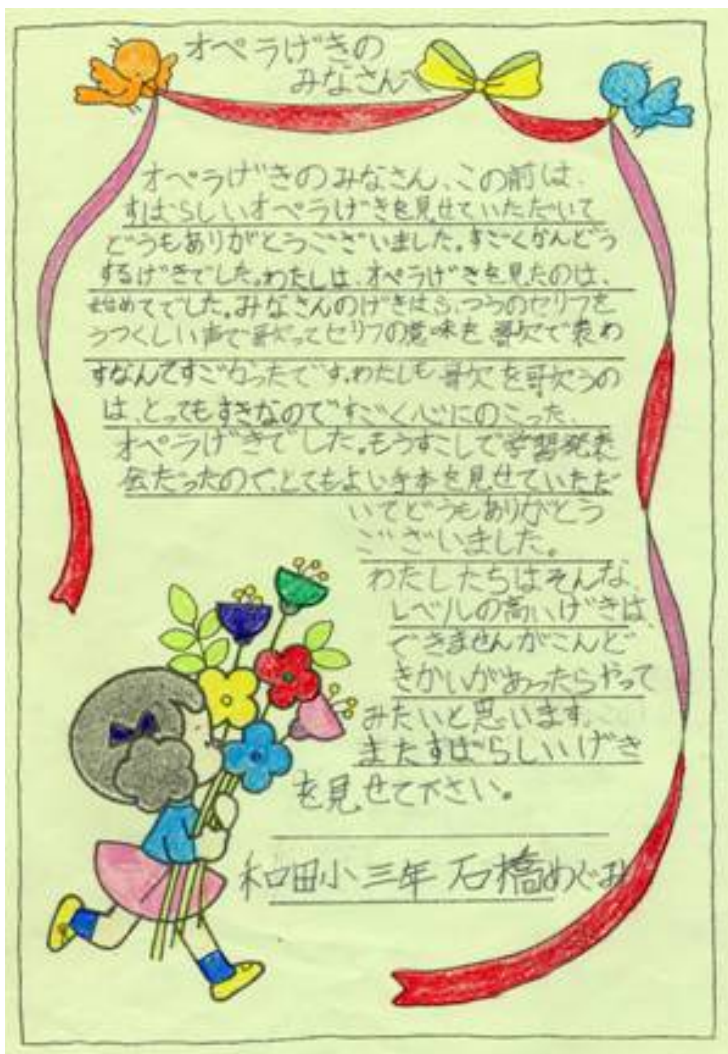 オペラげきの
みなさんへ
オペラげきのみなさん、この前は、
すばらしいオペラげきを見せていただいて
どうもありがとうございました。すごくかんどう
するげきでした。わたしは、オペラげきを見たのは、
始めてでした。みなさんのげきはふつうのセリフを
うつくしい声で歌ってセリフの意味を歌で表わ
すなんてすごかったです。わたしも歌を歌うの
は、とってもすきなのですごく心にのこった
オペラげきでした。もうすこしで学習発表
会だったので、とてもよい手本を見せていただ
いてどうもありがとう
ございました。
わたしたちはそんな、
レベルの高いげきは、
できませんがこんど
きかいがあったらやって
みたいと思います。
またすばらしいげき
を見せて下さい。
和田小三年 石橋めぐみ